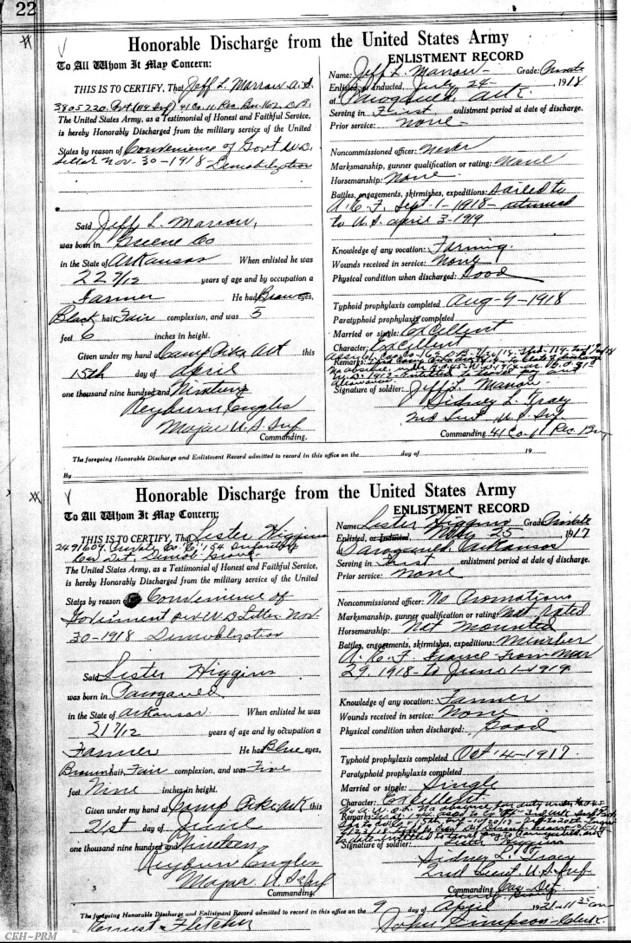 22
Honorable Discharge from the United States Army
To All Whom It May Concern:
THIS IS TO CERTIFY, That Jeff L. Marrow A.S.
3805220 Pvt
The United States Army, as a Testimonial of Honest and Faithful Service,
is hereby Honorably Discharged from the military service of the United
States by reason of Convenience of Govt W.D.
Letter Nov-30-1918 Demobilization
Said Jeff L. Marrow,
was born in Greene Co
in the State of Arkansas When enlisted he was
22 7/12 years of age and by occupation a
Farmer He had Brown eyes,
Black hair Fair complexion, and was 5
feet 6 inches in height.
Given under my hand Camp Pike Ark this
15th day of April
one thousand nine hundred and Nineteen
Reyburn Engles
Major U S Inf
Commanding.
ENLISTMENT RECORD
Name: Jeff L. Marrow- Grade: Private
Enlisted, or Inducted, July 24- 1918
at Paragould, Ark.
Serving in First enlistment period at date of discharge.
Prior service: None-
Noncommissioned officer: Never
Marksmanship, gunner qualification or rating: None
Horsemanship: None
Battles, engagements, skirmishes, expeditions: Sailed to
A.E.F. Sept-1-1918- returned
to U.S. April 3-1919
Knowledge of any vocation: Farming.
Wounds received in service: None
Physical condition when discharged: Good
Typhoid prophylaxis completed Aug-9-1918
Paratyphoid prophylaxis completed
Married or single:
Character: Excellent
Remarks:
Signature of soldier: Jeff L. Marrow
Sidney L. Tracy
2nd Lieut U.S. Inf
Commanding 41 Co. 11 Rec. Bn
The foregoing Honorable Discharge and Enlistment Record admitted to record in this office on the day of 19
By
Honorable Discharge from the United States Army
To All Whom It May Concern:
THIS IS TO CERTIFY, That Lester Higgins
2491609 Private Co. "C" 154 Infantry
The United States Army, as a Testimonial of Honest and Faithful Service,
is hereby Honorably Discharged from the military service of the United
States by reason Convenience of
Government per W D Letter Nov.
30-1918 Demobilization
Said Lester Higgins
was born in Paragould
in the State of Arkansas When enlisted he was
21 7/12 years of age and by occupation a
Farmer He had Blue eyes,
Brown hair, Fair complexion, and was Five
feet Nine inches in height.
Given under my hand at Camp Pike Ark this
21st day of June
one thousand nine hundred and Nineteen
Reyburn Engles
Major U S Inf
Commanding
ENLISTMENT RECORD
Name: Lester Higgins Grade: Private
Enlisted, or Inducted, 25 1917
Paragould, Arkansas
Serving in First enlistment period at date of discharge.
Prior service: None
Noncommissioned officer: No Promotions
Marksmanship, gunner qualification or rating: Not rated
Horsemanship: Not mounted
Battles, engagements, skirmishes, expeditions: Member
A.E.F. France from Mar
29, 1918- to June 1-1919
Knowledge of any vocation: Farmer
Wounds received in service: None
Physical condition when discharged: Good
Typhoid prophylaxis completed Oct 4-1917.
Paratyphoid prophylaxis completed
Married or single: Single
Character: Excellent
Remarks:
Signature of soldier: Lester Higgins
Sidney L. Tracy
2nd Lieut U.S. Inf
Commanding
The foregoing Honorable Discharge and Enlistment Record admitted to record in this office on the 9 day of April 1921
Ernest Fletcher
John Simpson-Clerk.
CEH~PRM